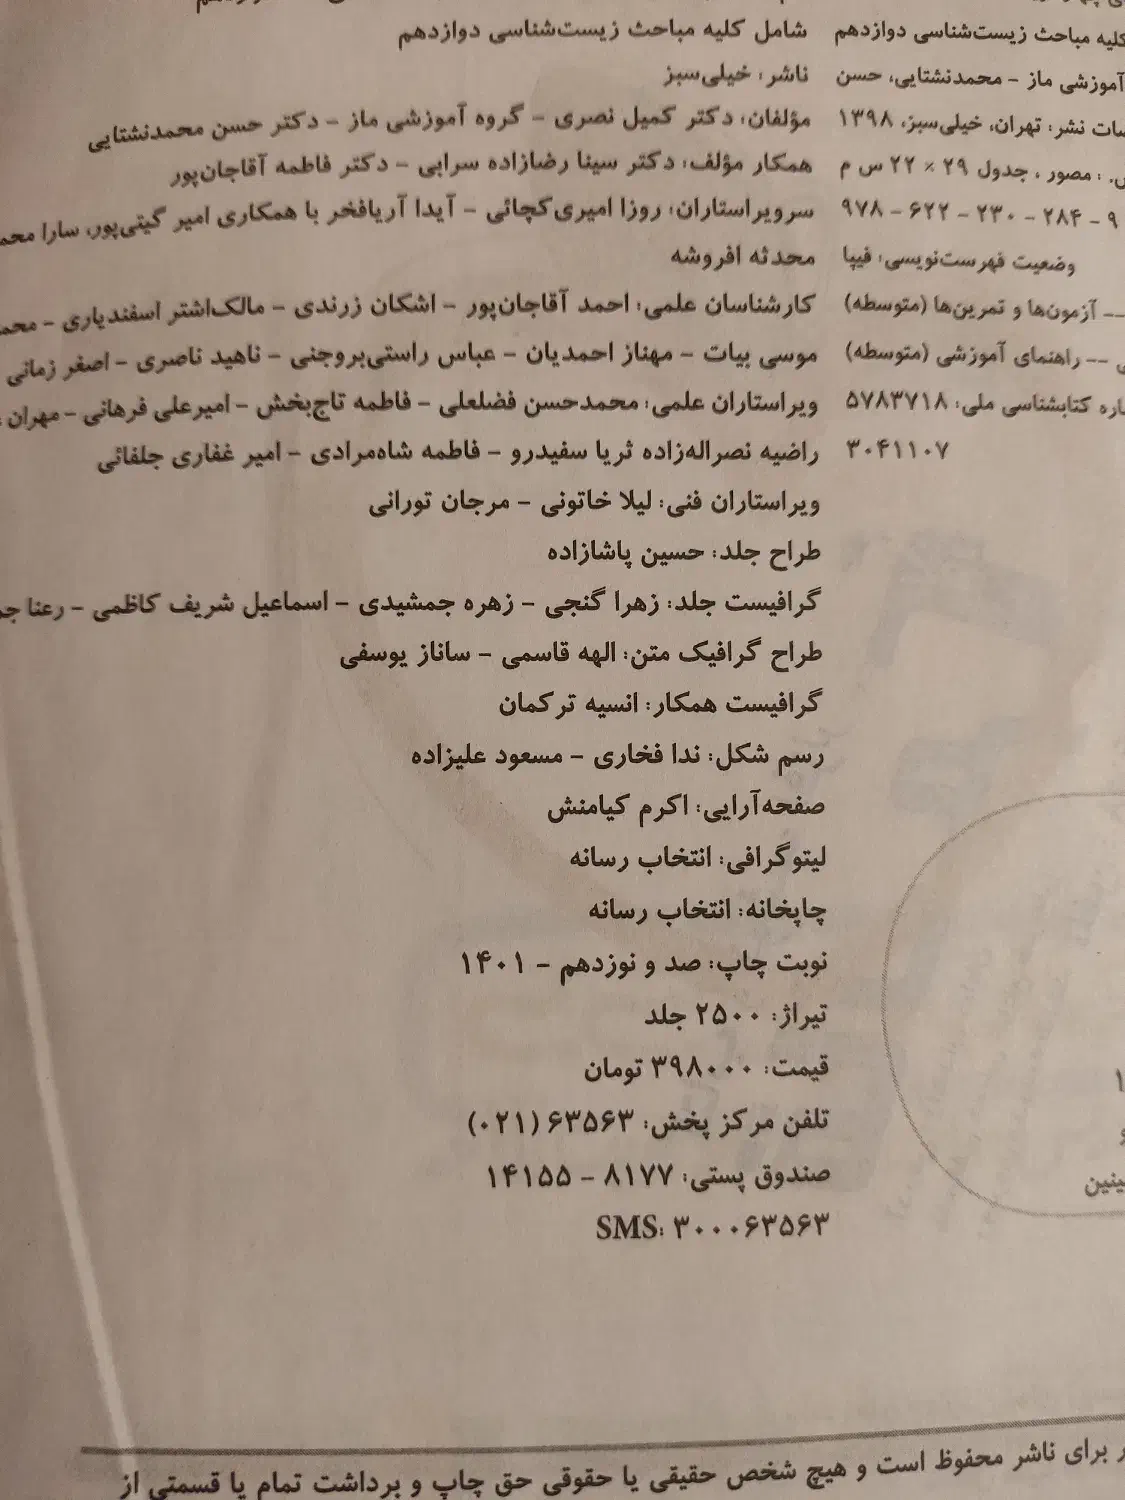 کلیه مباحث زیست‌شناسی دوازدهم
آموزشی ماز - محمدنشتایی، حسن
نشر: تهران، خیلی‌سبز، ۱۳۹۸
مصور ، جدول ۲۹ × ۲۲ س م
۹ - ۲۸۴ - ۲۳۰ - ۶۲۲ - ۹۷۸
وضعیت فهرست‌نویسی: فیپا
-- آزمون‌ها و تمرین‌ها (متوسطه)
-- راهنمای آموزشی (متوسطه)
کتابشناسی ملی: ۵۷۸۳۷۱۸
۳۰۴۱۱۰۷
شامل کلیه مباحث زیست‌شناسی دوازدهم
ناشر: خیلی‌سبز
مؤلفان: دکتر کمیل نصری - گروه آموزشی ماز - دکتر حسن محمدنشتایی
همکار مؤلف: دکتر سینا رضازاده سرابی - دکتر فاطمه آقاجان‌پور
سرویراستاران: روزا امیری‌کچائی - آیدا آریافخر با همکاری امیر گیتی‌پور، سارا
محدثه افروشه
کارشناسان علمی: احمد آقاجان‌پور - اشکان زرندی - مالک‌اشتر اسفندیاری -
موسی بیات - مهناز احمدیان - عباس راستی‌بروجنی - ناهید ناصری - اصغر زمانی
ویراستاران علمی: محمدحسن فضلعلی - فاطمه تاج‌بخش - امیرعلی فرهانی - مهران
راضیه نصراله‌زاده ثریا سفیدرو - فاطمه شاه‌مرادی - امیر غفاری جلفائی
ویراستاران فنی: لیلا خاتونی - مرجان تورانی
طراح جلد: حسین پاشازاده
گرافیست جلد: زهرا گنجی - زهره جمشیدی - اسماعیل شریف کاظمی - رعنا
طراح گرافیک متن: الهه قاسمی - ساناز یوسفی
گرافیست همکار: انسیه ترکمان
رسم شکل: ندا فخاری - مسعود علیزاده
صفحه‌آرایی: اکرم کیامنش
لیتوگرافی: انتخاب رسانه
چاپخانه: انتخاب رسانه
نوبت چاپ: صد و نوزدهم - ۱۴۰۱
تیراژ: ۲۵۰۰ جلد
قیمت: ۳۹۸۰۰۰ تومان
تلفن مرکز پخش: ۶۳۵۶۳ (۰۲۱)
صندوق پستی: ۸۱۷۷ - ۱۴۱۵۵
SMS: ۳۰۰۰۶۳۵۶۳
برای ناشر محفوظ است و هیچ شخص حقیقی یا حقوقی حق چاپ و برداشت تمام یا قسمتی از